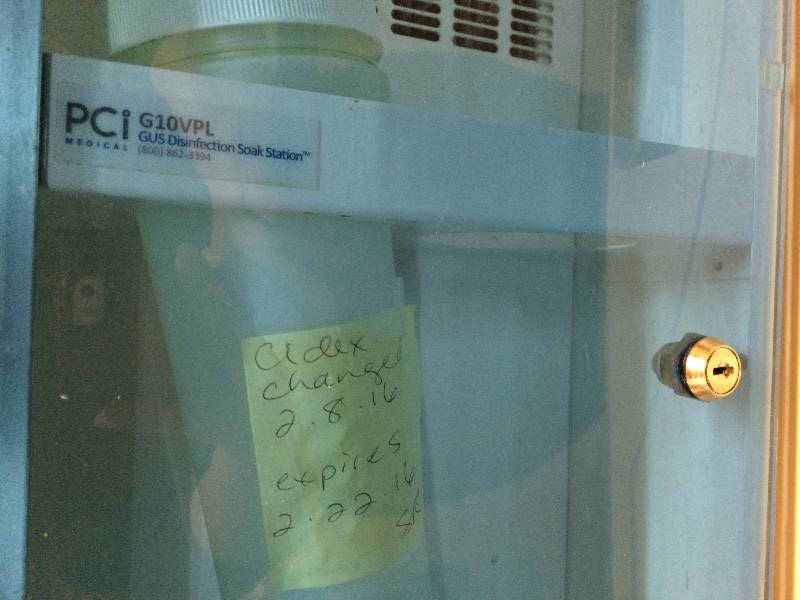 PCi
MEDICAL
G10VPL
GUS Disinfection Soak Station™
(800)-862-3394
Cidex
changed
2.8.16
expires
2.22.16
SR